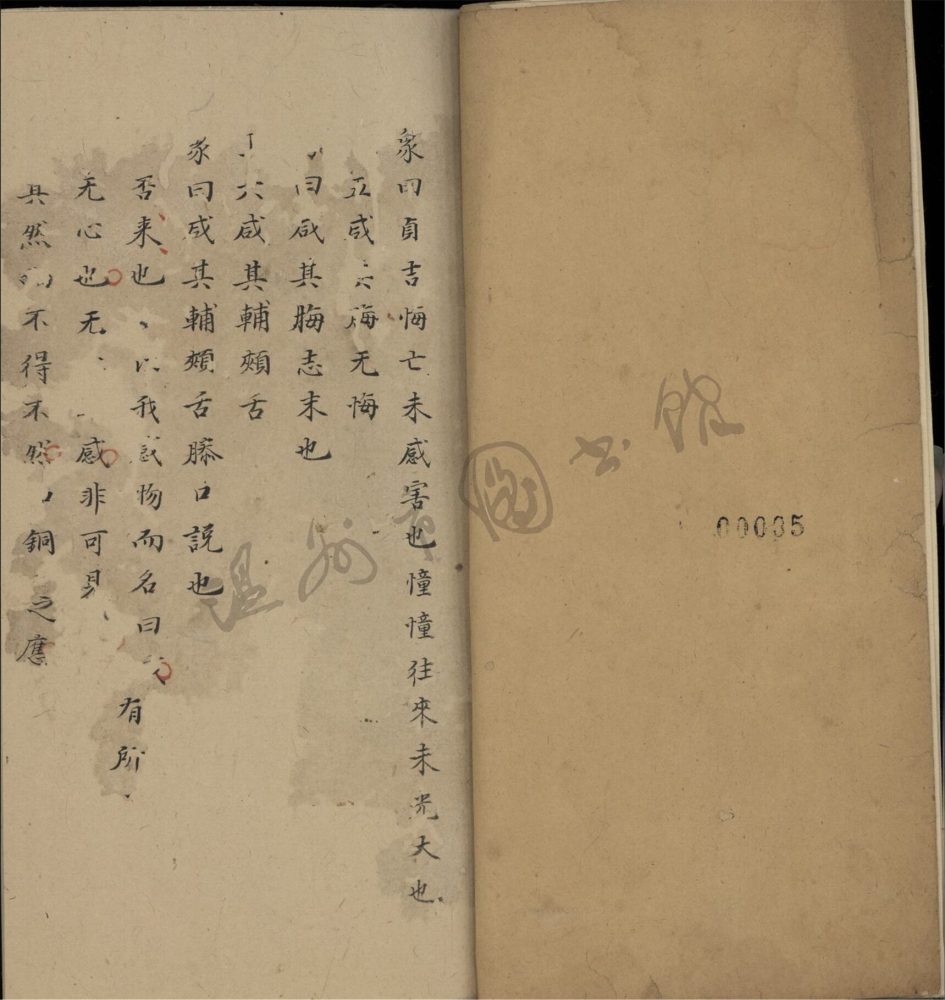 00035
象曰貞吉悔亡未感害也憧憧往來未光大也
五咸其脢无悔
曰咸其脢志末也
六咸其輔頰舌
象曰咸其輔頰舌滕口説也
否来也以我感物而名曰有所
无心也无感非可易
其然而不得不然銅之應
温州圖書館